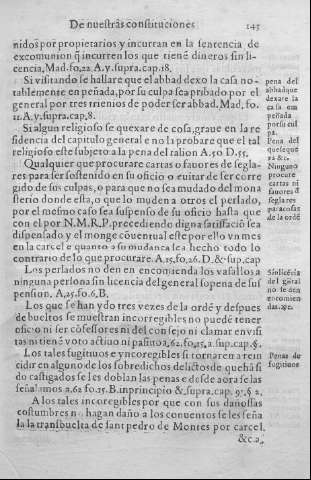 De nuestras constituciones 145
nidos por propietarios y incurran en la sentencia de
excomunion q̃ incurren los que tienē dineros sin li-
cencia, Mad. fo, 22. A. y. supra. cap. 18.
Si visitando se hallare que el abbad dexo la casa no-
tablemente en peñada, por su culpa sea pribado por el
general por tres trienios de poder ser abbad. Mad, fo.
12. A. y. supra, cap, 8.
Si algun religioso se quexare de cosa, graue en la re
sidencia del capitulo general e no la probare que el tal
religioso este subjeto a la pena del talion A. 50 D. 55.
Qualquier que procurare cartas o fauores de segla-
res para ser sostenido en su oficio o euitar de ser corre
gido de sus culpas, o para que no sea mudado del mona
sterio donde esta, o que lo muden a otros el perlado,
por el mesmo caso sea suspenso de su oficio hasta que
con el por N. M. R. P. precediendo digna satisfació sea
dispensado, y el monge cōuentual este por ello vn mes
en la carcel e quanto a su mudança sea hecho todo lo
contrario de lo que procurare. A. 15, fo, 26. D. & sup. cap
Los perlados no den en encomienda los vasallos a
ninguna persona sin licencia del general sopena de sus
pension. A, 25. fo. 6, B.
Los que se han ydo tres vezes de la ordē y despues
de bueltos se muestran incorregibles no puedē tener
oficio ni ser cōfessores ni del consejo ni clamar en visi
tas ni tienē voto actiuo ni pasiuo a, 62. fo, 15, a. sup. cap. §.
Los tales fugitiuos y encorregibles si tornaren a rein
cidir en alguno de los sobredichos delictos de que hā si
do castigados se les doblan las penas e desde aora se las
señalamos a. 62 fo. 15. B. in principio & supra. cap. 97. § 2,
A los tales incoregibles por que con sus dañosas
costumbres no hagan daño a los conuentos se les seña
la la transbuelta de sant pedro de Montes por carcel.
&c. a,
pena del
abbad que
dexare la
casa em
peñada
por su cul
pa.
Pena del
que se que
xa &c.
Ninguno
procure
cartas ni
fauores d̄
seglares
de la ordē
del gñral
no se den
encomien
das, &c.
Penas de
fugitiuos